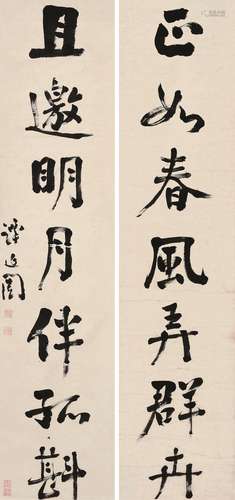 正如春風弄群卉
且邀明月伴孤斟
譚延闓